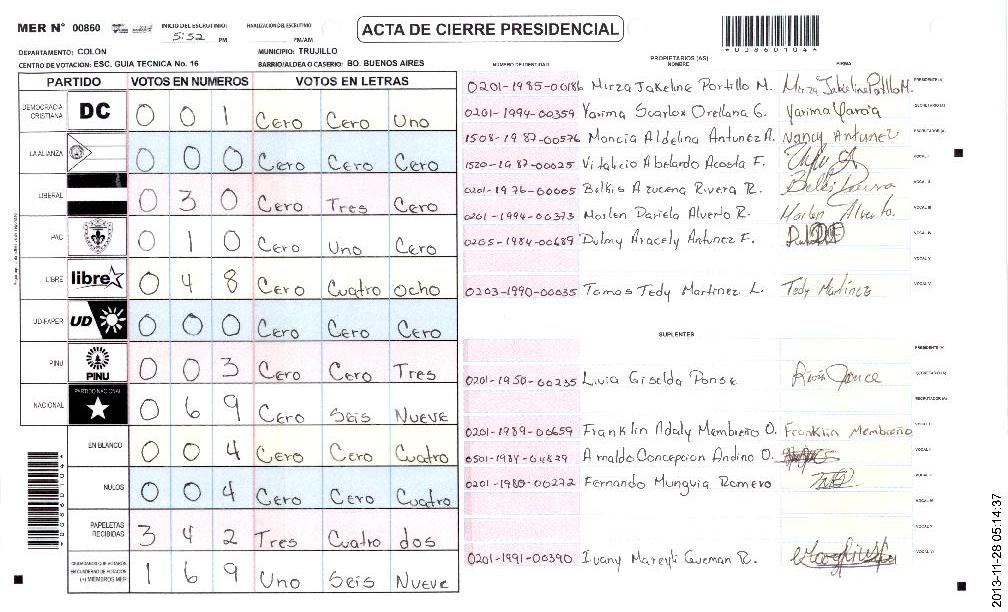 MER N° 00860
INICIO DEL ESCRUTINIO:
5:52 PM
FINALIZACION DEL ESCRUTINIO
PM/AM
ACTA DE CIERRE PRESIDENCIAL
DEPARTAMENTO: COLON
MUNICIPIO: TRUJILLO
CENTRO DE VOTACION: ESC. GUIA TECNICA No. 16
BARRIO/ALDEA O CASERIO: BO. BUENOS AIRES
PARTIDO VOTOS EN NUMEROS VOTOS EN LETRAS
DEMOCRACIA CRISTIANA DC 0 0 1 Cero Cero Uno
LA ALIANZA 0 0 0 Cero Cero Cero
LIBERAL 0 3 0 Cero Tres Cero
PAC 0 1 0 Cero Uno Cero
LIBRE libre 0 4 8 Cero Cuatro Ocho
UD-FAPER UD 0 0 0 Cero Cero Cero
PINU PINU 0 0 3 Cero Cero Tres
NACIONAL PARTIDO NACIONAL 0 6 9 Cero Seis Nueve
EN BLANCO 0 0 4 Cero Cero Cuatro
NULOS 0 0 4 Cero Cero Cuatro
PAPELETAS RECIBIDAS 3 4 2 Tres Cuatro dos
CIUDADANOS QUE VOTARON EN CUADERNO DE VOTACION (+) MIEMBROS MER 1 6 9 Uno Seis Nueve
PROPIETARIOS (AS)
NUMERO DE IDENTIDAD NOMBRE FIRMA
0201-1985-00186 Mirza Jakeline Portillo M. PRESIDENTE (A)
0201-1994-00359 Yarima Scarlox Orellana G. Yarima Garcia SECRETARIO (A)
1508-1987-00576 Moncia Aldelina Antunez A. Nancy Antunez ESCRUTADOR (A)
1520-1987-00025 Vitalicio Abelardo Acosta F. VOCAL I
0201-1976-00005 Belkis Azucena Rivera R. VOCAL II
0201-1994-00373 Marlen Dariela Alverto R. Marlen Alverto. VOCAL III
0205-1984-00689 Dulmy Aracely Antunez F. VOCAL IV
VOCAL V
0203-1990-00035 Tomas Tedy Martinez L. Tedy Martínez VOCAL VI
SUPLENTES
PRESIDENTE (A)
0201-1950-00235 Luia Giselda Ponse SECRETARIO (A)
ESCRUTADOR (A)
0201-1989-00659 Franklin Adaly Membreño O. Franklin Membreño VOCAL I
Arnaldo Concepcion Andino O. VOCAL II
0201-1980-00232 Fernando Munguia Romero VOCAL III
VOCAL IV
VOCAL V
0201-1991-00390 VOCAL VI
2013-11-28 05:14:37